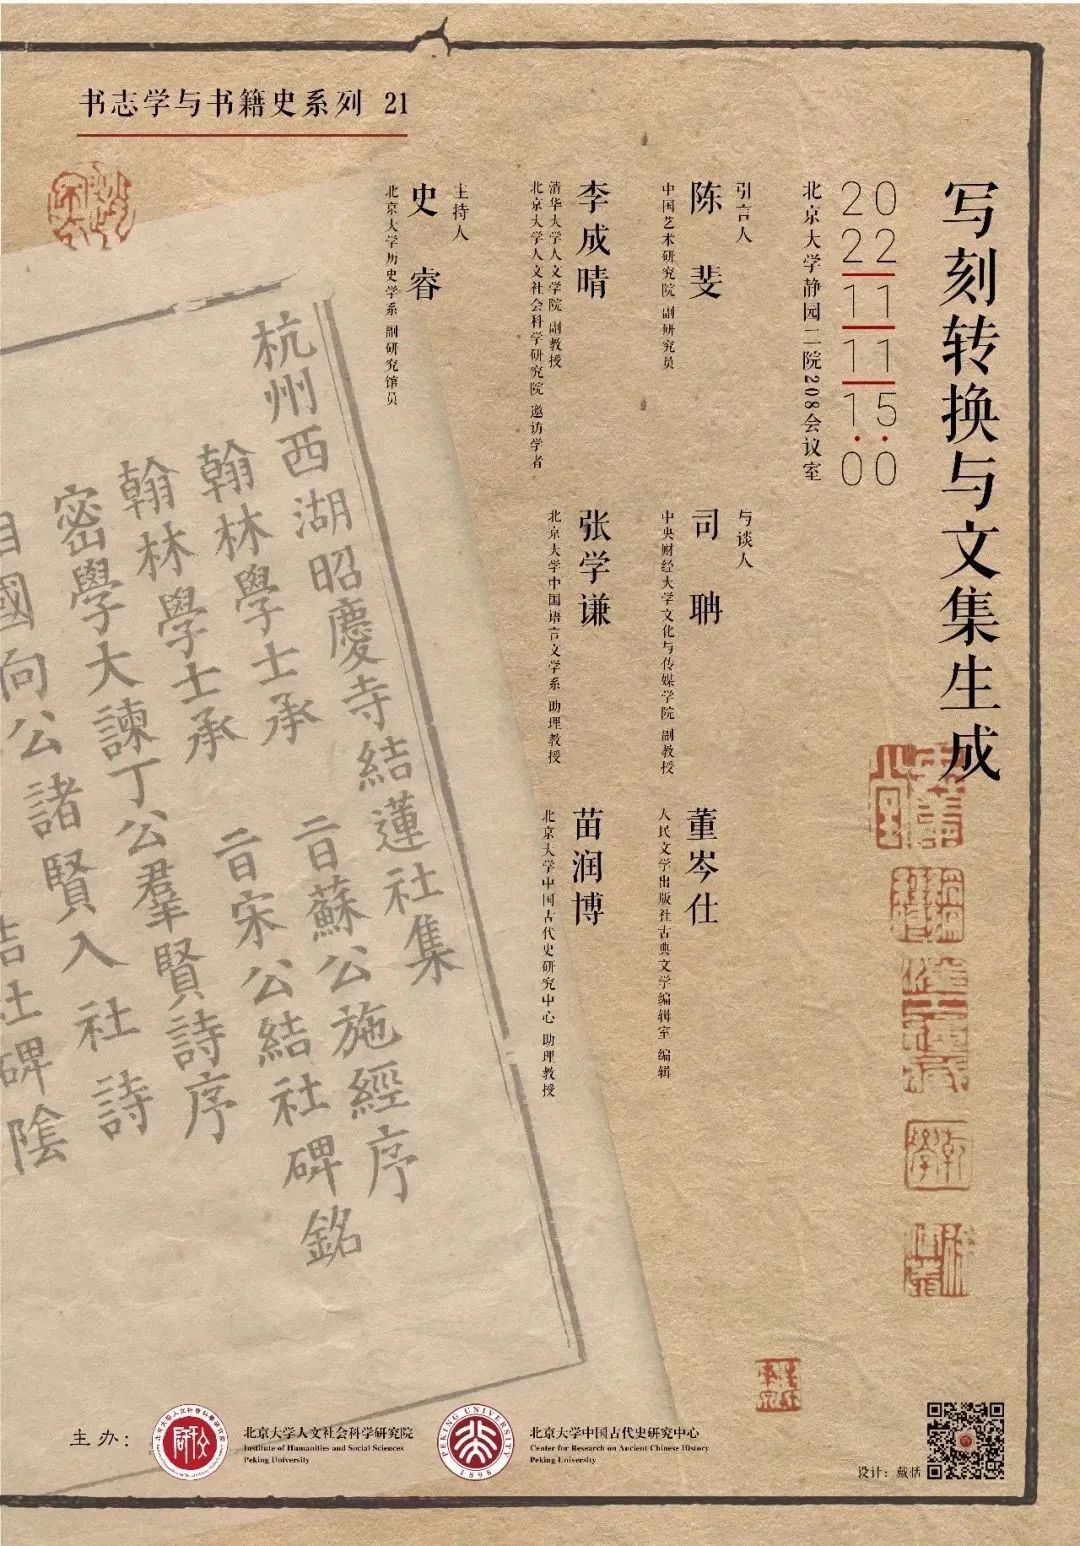 书志学与书籍史系列 21
写刻转换与文集生成
2022
11
11
15:00
北京大学静园二院208会议室
引言人
陈斐
中国艺术研究院 副研究员
李成晴
清华大学人文学院 副教授
北京大学人文社会科学研究院 邀访学者
与谈人
司聃
中央财经大学文化与传媒学院 副教授
董岑仕
人民文学出版社古典文学编辑室 编辑
张学谦
北京大学中国语言文学系 助理教授
苗润博
北京大学中国古代史研究中心 助理教授
主持人
史睿
北京大学历史学系 副研究馆员
杭州西湖昭慶寺結蓮社集
翰林學士承 旨蘇公施經序
翰林學士承 旨宋公結社碑銘
密學大諫丁公羣賢詩序
相國向公諸賢入社詩
結社碑陰
主办：
北京大学人文社会科学研究院
Institute of Humanities and Social Sciences
Peking University
PEKING UNIVERSITY
1898
北京大学中国古代史研究中心
Center for Research on Ancient Chinese History
Peking University
设计：戴恬